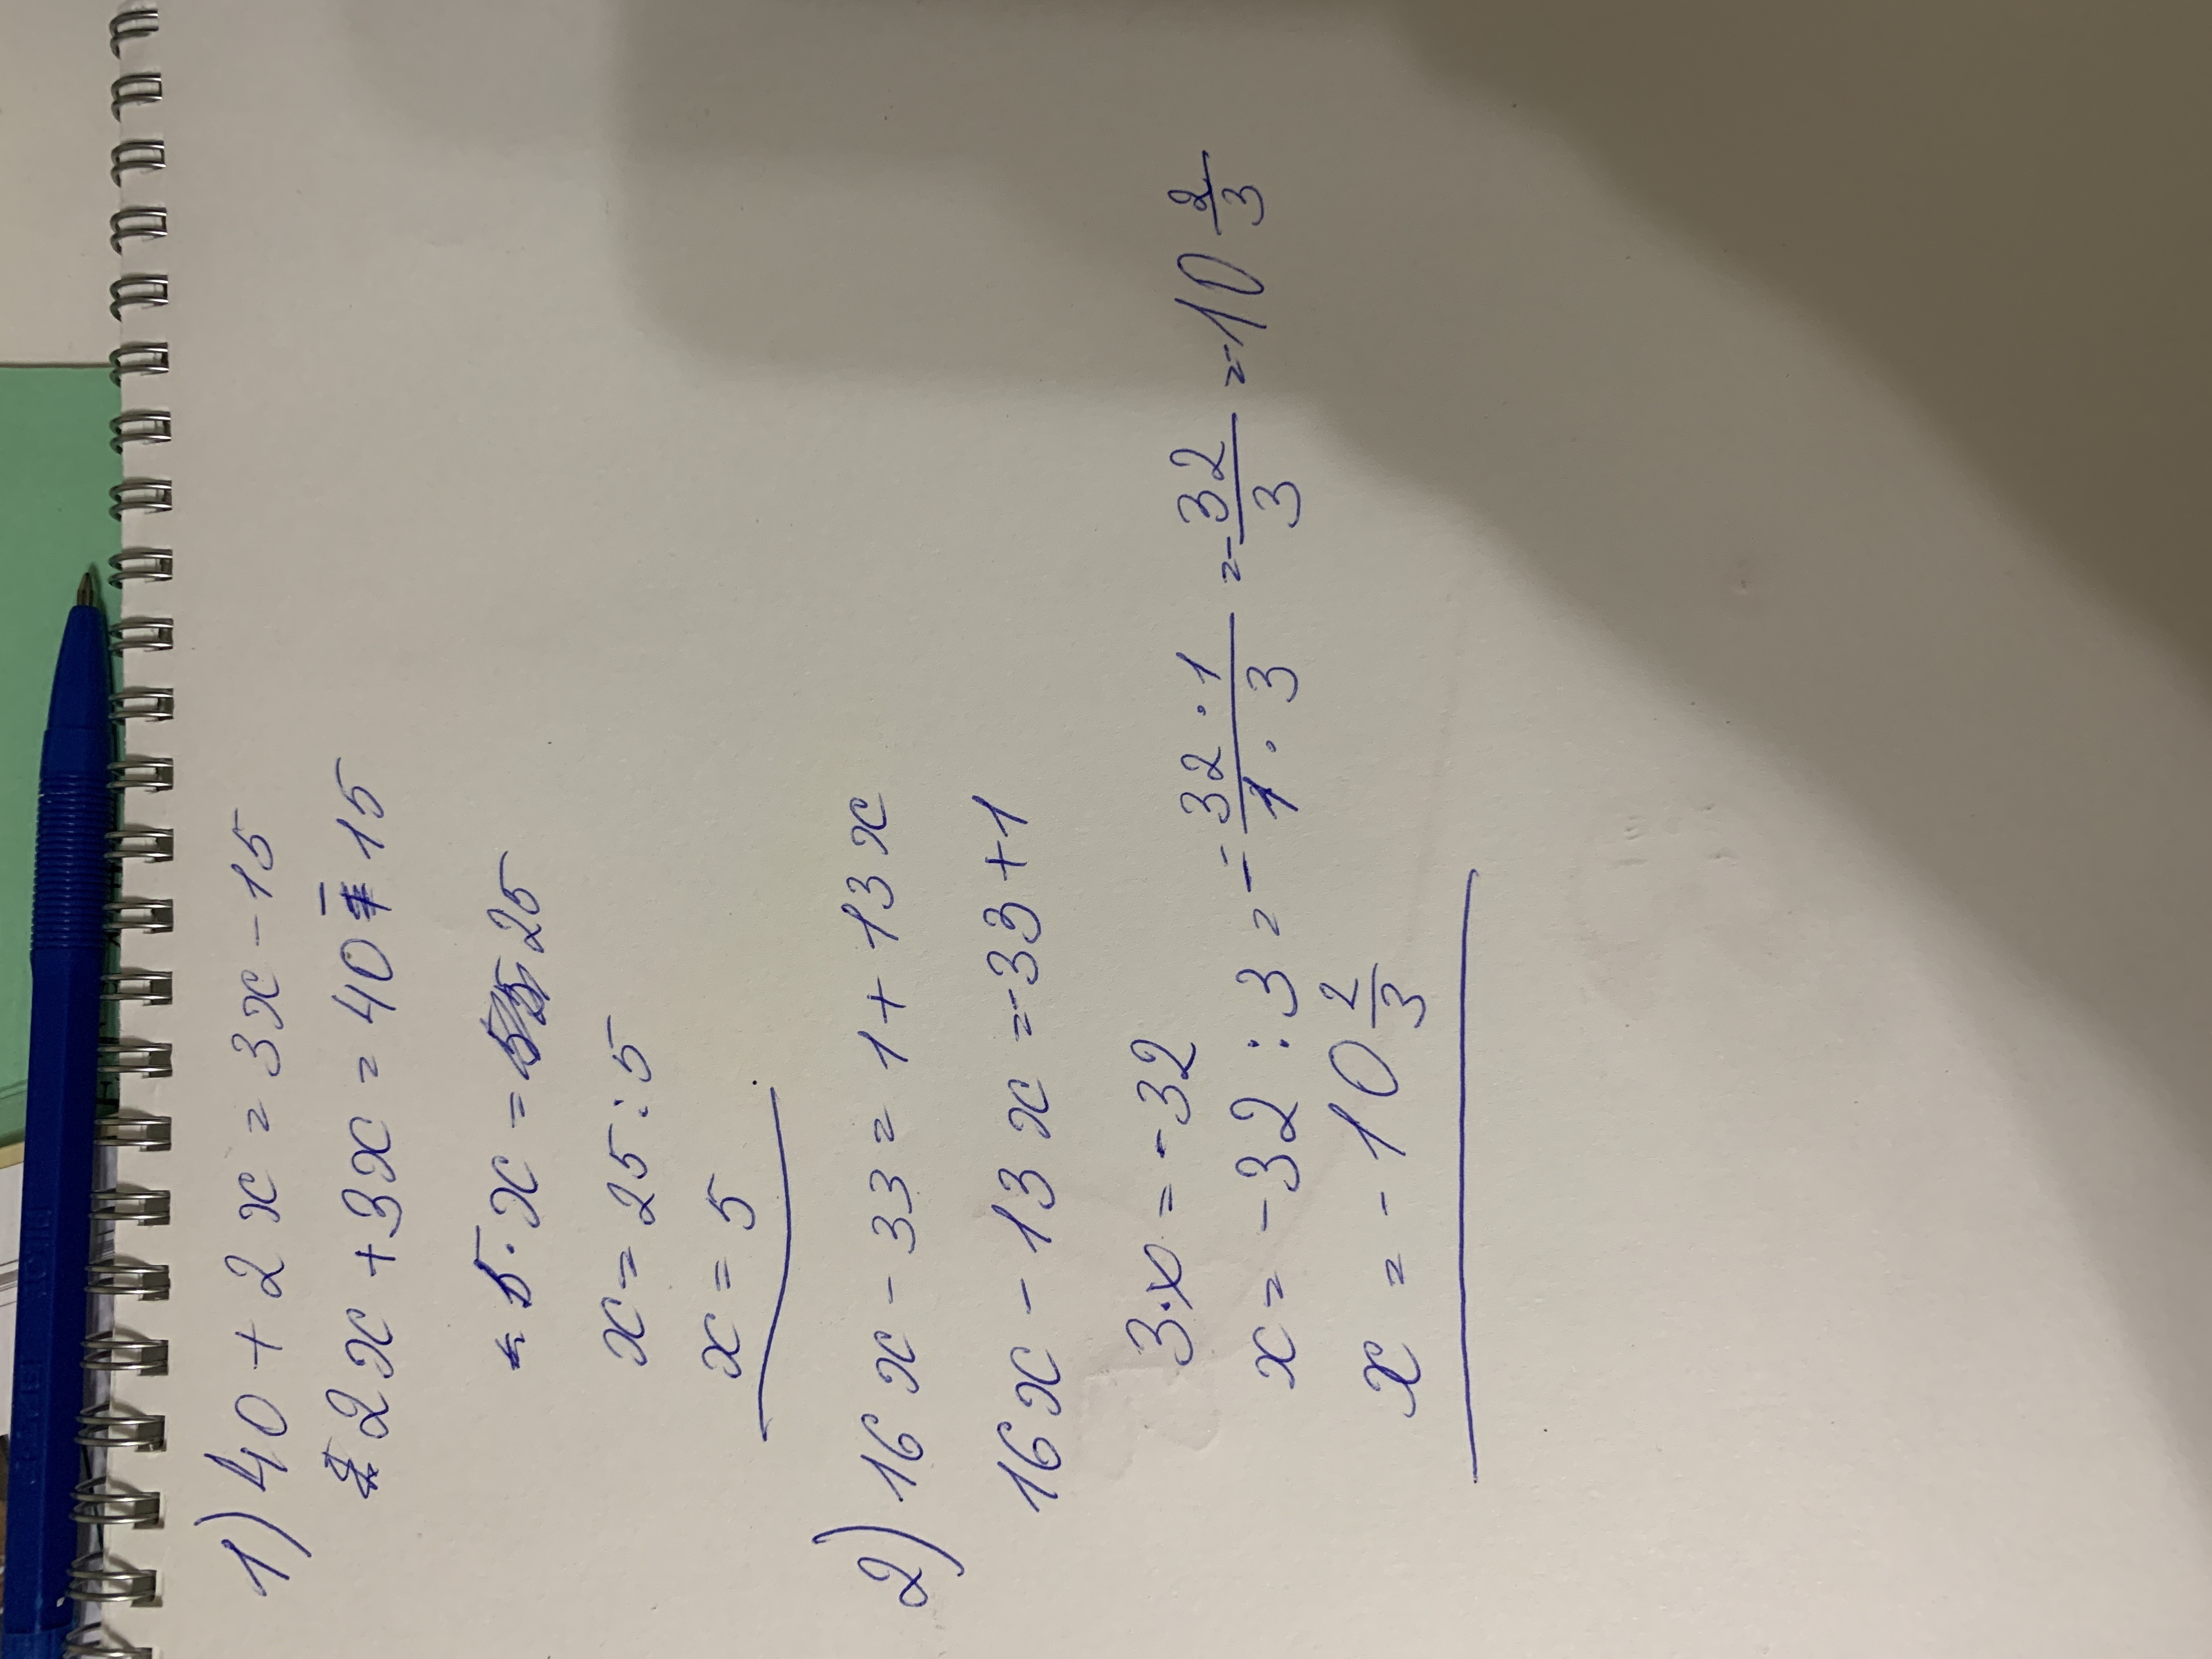 1) 40 + 2x = 3x - 15
2x + 3x = 40 - 15
5 · x = 25
x = 25 : 5
x = 5
2) 16x - 33 = 1 + 13x
16x - 13x = -33 + 1
3·x = -32
x = -32 : 3 = - 32 · 1 / 1 · 3 = - 32/3 = -10 2/3
x = -10 2/3